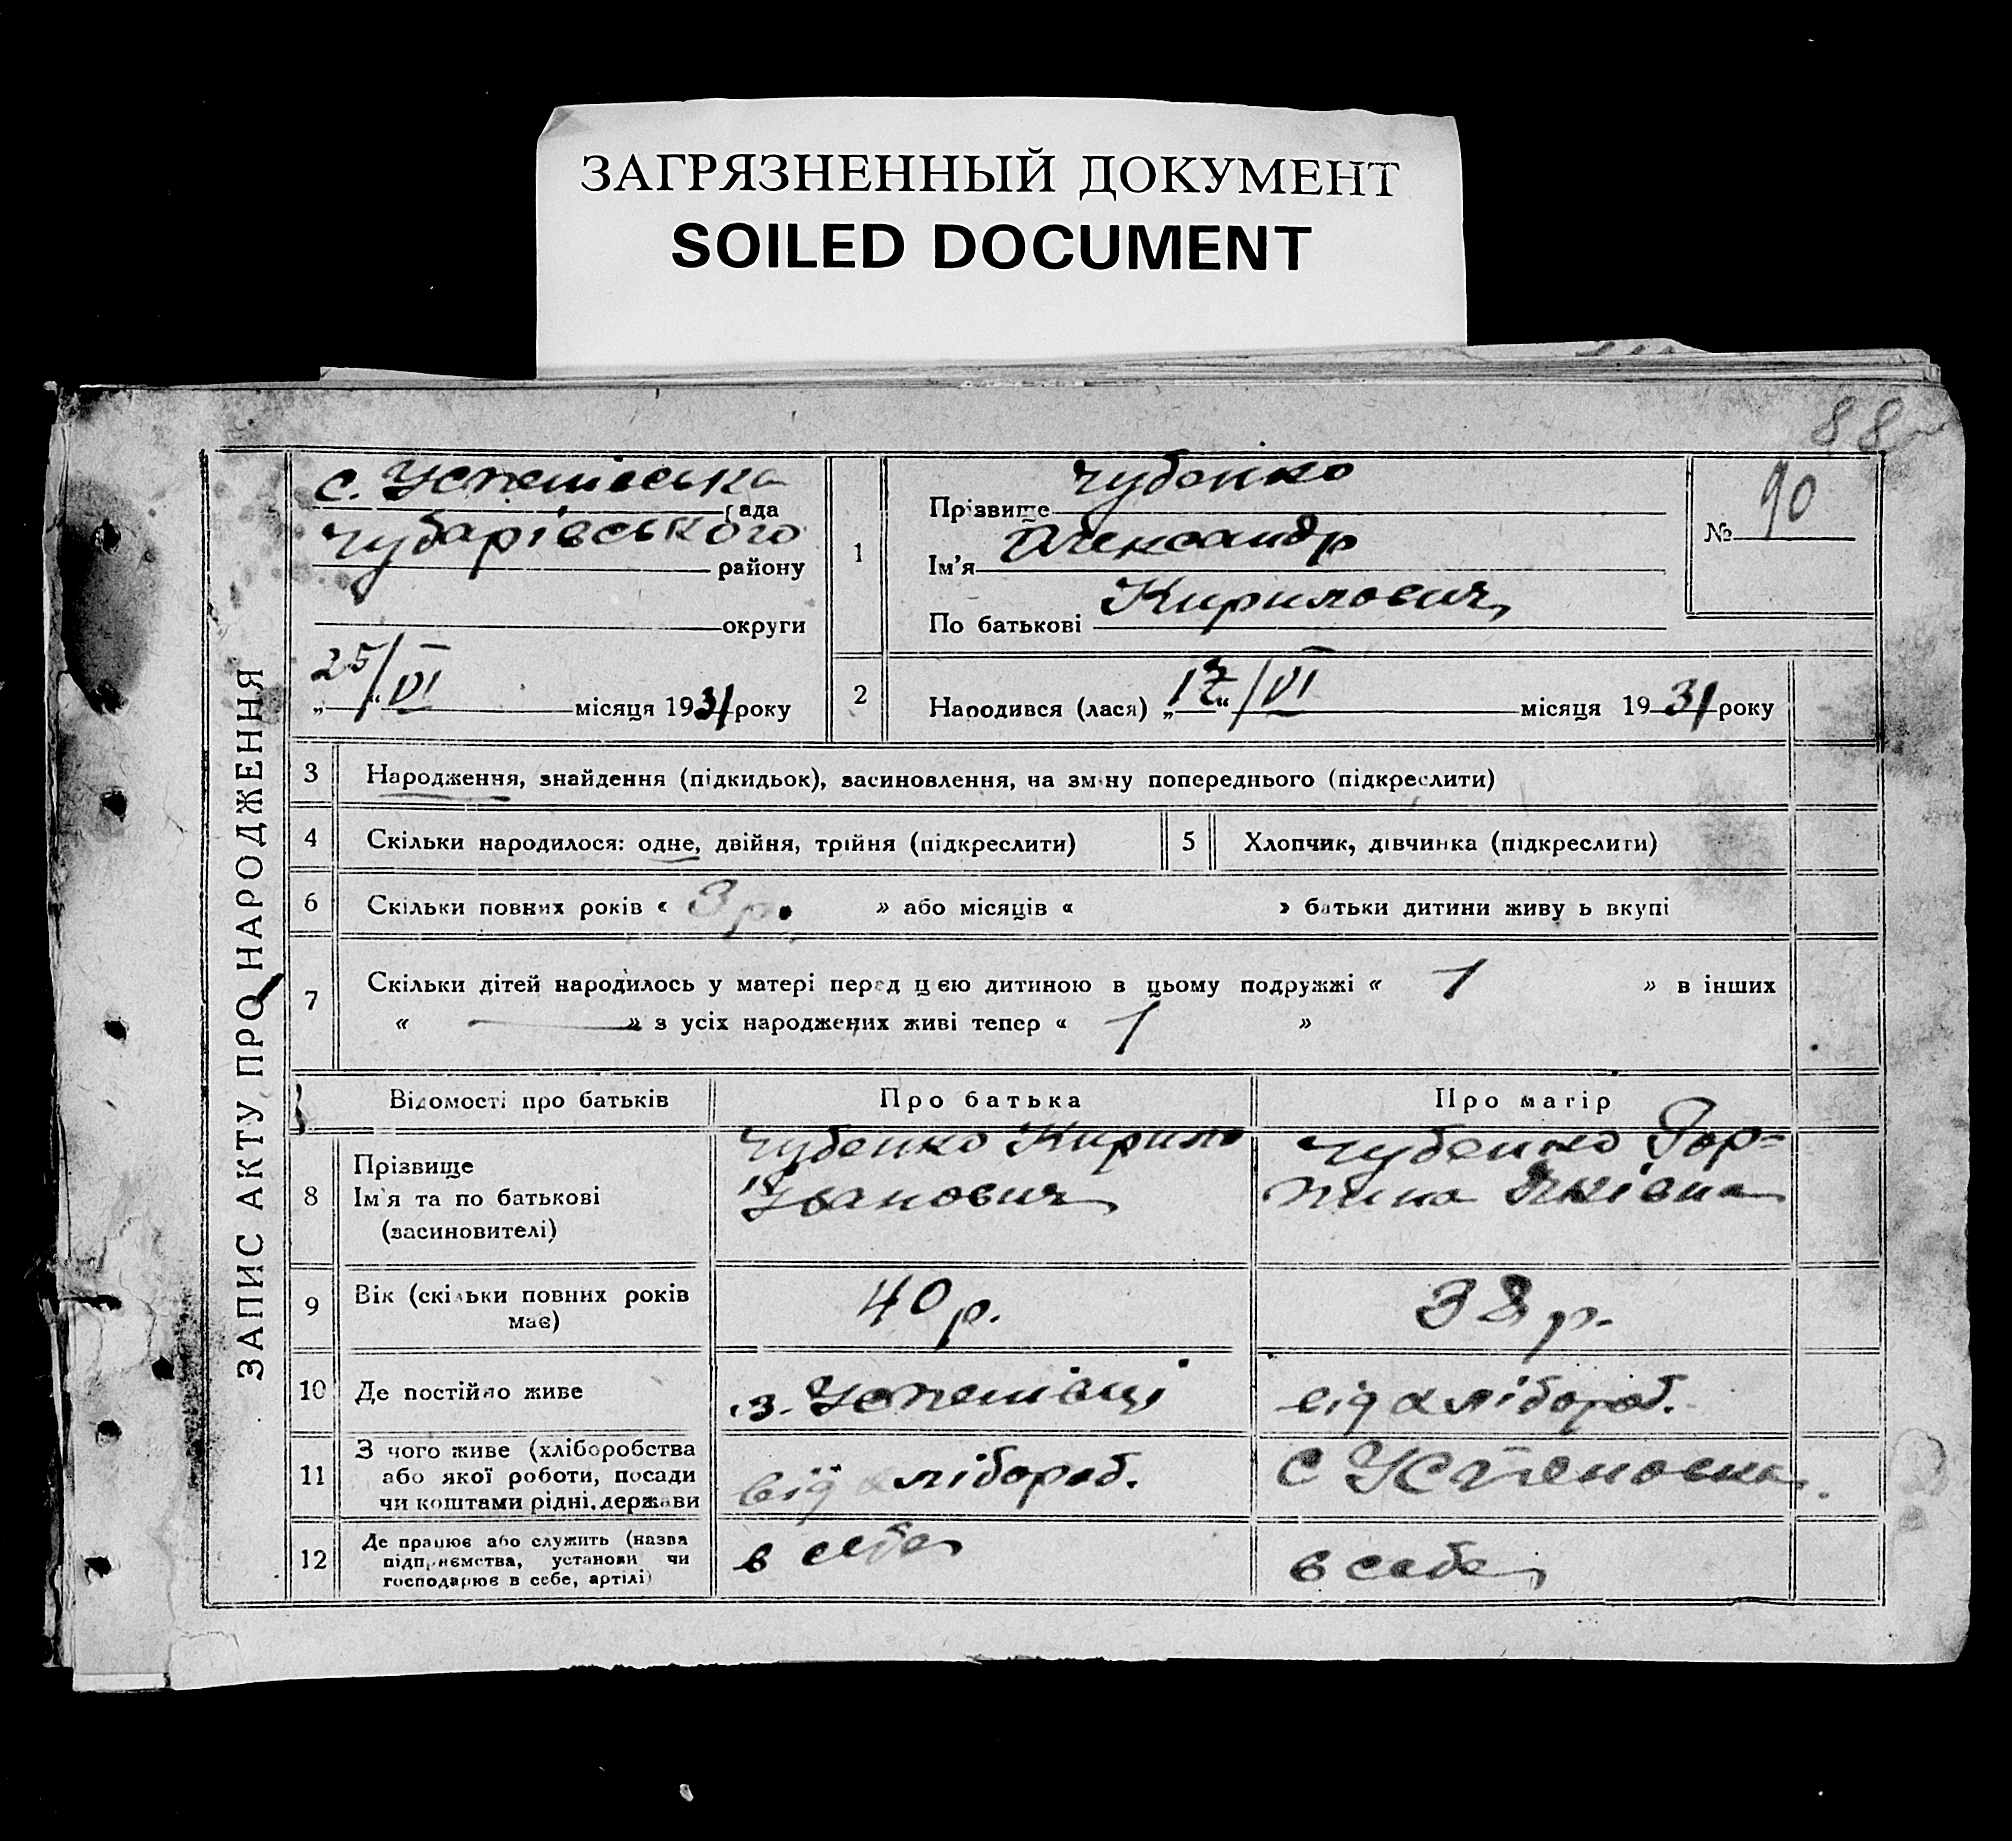 ЗАГРЯЗНЕННЫЙ ДОКУМЕНТ
SOILED DOCUMENT
88
ЗАПИС АКТУ ПРО НАРОДЖЕННЯ
с. Успенівська рада
Чубарівського району
округи
„25/“ VI місяця 1931 року
1
Прізвище Чубенко
Ім'я Олександр
По батькові Кирилович
№ 90
2 Народився (лася) „17“/VI місяця 1931 року
3 Народження, знайдення (підкидьок), засиновлення, на зміну попереднього (підкреслити)
4 Скільки народилося: одне, двійня, трійня (підкреслити)
5 Хлопчик, дівчинка (підкреслити)
6 Скільки повних років « 3 р. » або місяців « » батьки дитини живуть вкупі
7 Скільки дітей народилось у матері перед цією дитиною в цьому подружжі « 1 » в інших
« — » з усіх народжених живі тепер « 1 »
Відомості про батьків Про батька Про матір
8 Прізвище
Ім'я та по батькові
(засиновителі)
Чубенко Кирило
Іванович
Чубенко Гор=
пина Яківна
9 Вік (скільки повних років
має)
40 р.
38 р.
10 Де постійно живе
з. Успенівці
від хлібороб.
11 З чого живе (хліборобства
або якої роботи, посади
чи коштами рідні, держави
від хлібороб.
с
12 Де працює або служить (назва
підприємства, установи чи
господарює в себе, артілі)
в себе
в себе